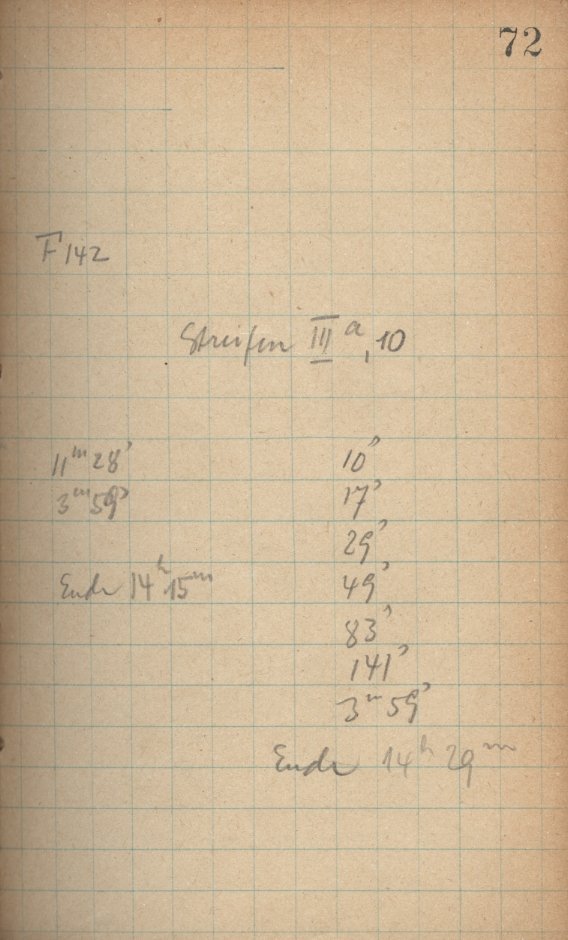 72
F 142
Streifen III a, 10
11 m 28 s
3 m 59 s
Ende 14 h 15 m
10 s
17 s
29 s
49 s
83 s
141 s
3 m 59 s
Ende 14 h 29 m